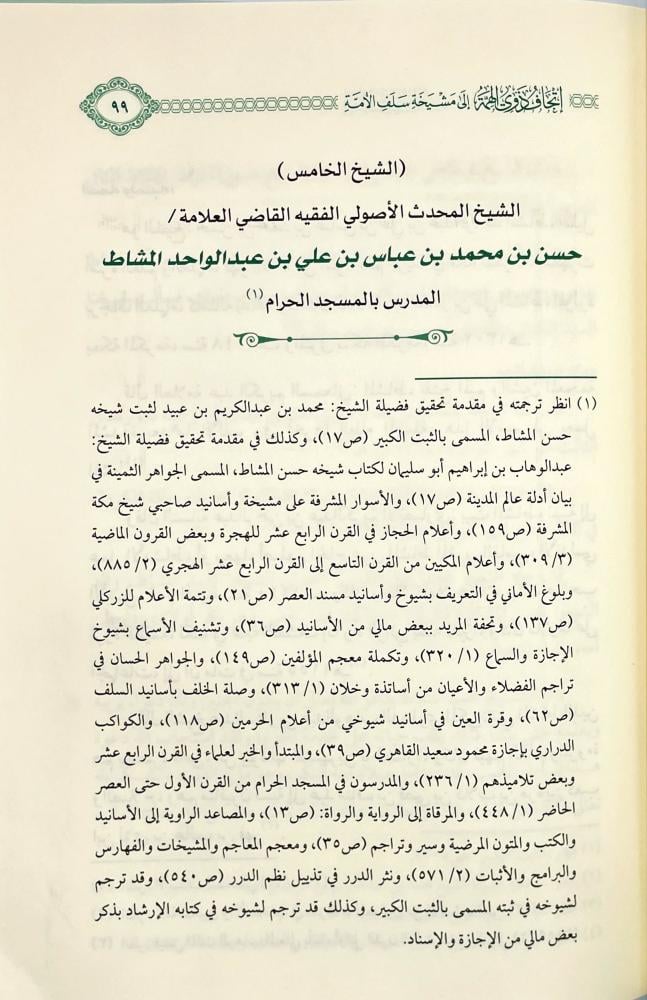 إتحاف ذوي الهمة إلى مشيخة سلف الأمة
٩٩
(الشيخ الخامس)
الشيخ المحدث الأصولي الفقيه القاضي العلامة /
حسن بن محمد بن عباس بن علي بن عبدالواحد المشاط
المدرس بالمسجد الحرام(١)
(١) انظر ترجمته في مقدمة تحقيق فضيلة الشيخ: محمد بن عبدالكريم بن عبيد لثبت شيخه
حسن المشاط، المسمى بالثبت الكبير (ص١٧)، وكذلك في مقدمة تحقيق فضيلة الشيخ:
عبدالوهاب بن إبراهيم أبو سليمان لكتاب شيخه حسن المشاط، المسمى الجواهر الثمينة في
بيان أدلة عالم المدينة (ص١٧)، والأسوار المشرفة على مشيخة وأسانيد صاحبي شيخ مكة
المشرفة (ص١٥٩)، وأعلام الحجاز في القرن الرابع عشر للهجرة وبعض القرون الماضية
(٣/ ٣٠٩)، وأعلام المكيين من القرن التاسع إلى القرن الرابع عشر الهجري (٢/ ٨٨٥)،
وبلوغ الأماني في التعريف بشيوخ وأسانيد مسند العصر (ص٢١)، وتتمة الأعلام للزركلي
(ص١٣٧)، وتحفة المريد ببعض مالي من الأسانيد (ص٣٦)، وتشنيف الأسماع بشيوخ
الإجازة والسماع (١/ ٣٢٠)، وتكملة معجم المؤلفين (ص١٤٩)، والجواهر الحسان في
تراجم الفضلاء والأعيان من أساتذة وخلان (١/ ٣١٣)، وصلة الخلف بأسانيد السلف
(ص٦٢)، وقرة العين في أسانيد شيوخي من أعلام الحرمين (ص١١٨)، والكواكب
الدراري بإجازة محمود سعيد القاهري (ص٣٩)، والمبتدأ والخبر لعلماء في القرن الرابع عشر
وبعض تلاميذهم (١/ ٢٣٦)، والمدرسون في المسجد الحرام من القرن الأول حتى العصر
الحاضر (١/ ٤٤٨)، والمرقاة إلى الرواية والرواة: (ص١٣)، والمصاعد الراوية إلى الأسانيد
والكتب والمتون المرضية وسير وتراجم (ص٣٥)، ومعجم المعاجم والمشيخات والفهارس
والبرامج والأثبات (٢/ ٥٧١)، ونثر الدرر في تذييل نظم الدرر (ص٥٤٠)، وقد ترجم
لشيوخه في ثبته المسمى بالثبت الكبير، وكذلك قد ترجم لشيوخه في كتابه الإرشاد بذكر
بعض مالي من الإجازة والإسناد.